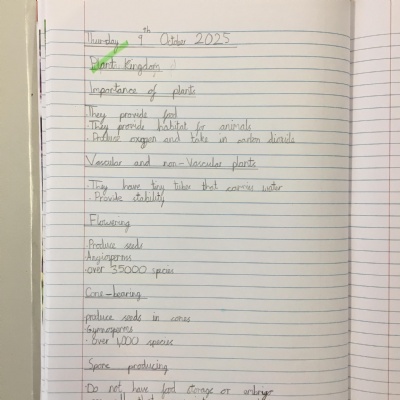 Thursday 9th October 2025
Plant Kingdom
Importance of plants
·They provide food
·They provide habitat for animals
·Produce oxygen and take in carbon dioxide
Vascular and non-Vascular plants
·They have tiny tubes that carries water
·Provide stability
Flowering
·Produce seeds
Angiosperms
·over 35000 species
Cone-bearing
produce seeds in cones
·Gymnosperms
·over 1,000 species
Spore producing
Do not have food storage or